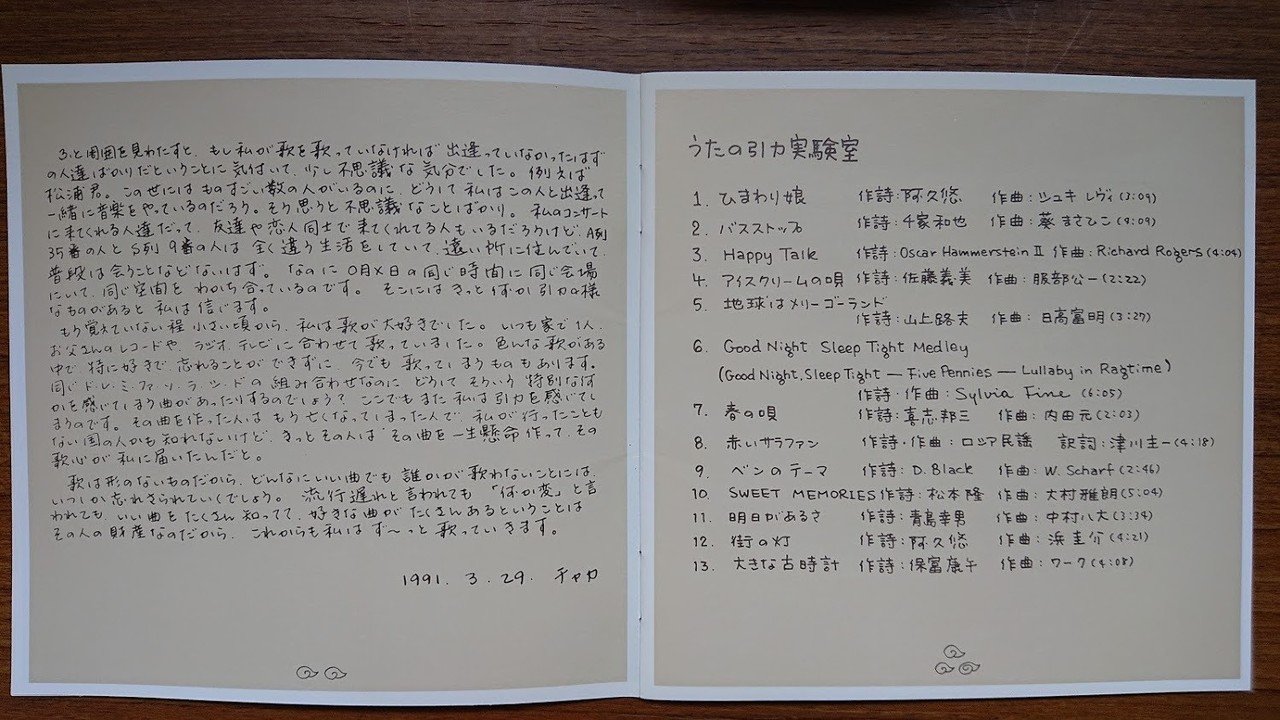 ふと周囲を見わたすと、もし私が歌を歌っていなければ出逢っていなかったはず
の人達ばかりだということに気付いて、少し不思議な気分でした。例えば
松浦君。この世にはものすごい数の人がいるのに、どうして私はこの人と出逢って
一緒に音楽をやっているのだろう。そう思うと不思議なことばかり。私のコンサート
に来てくれる人達だって、友達や恋人同士で来てくれてる人もいるだろうけど、A列
35番の人とS列9番の人は全く違う生活をしていて、遠い所に住んでいて、
普段は会うことなどないはず。なのに〇月×日の同じ時間に同じ会場
にいて、同じ空間をわかち合っているのです。そこにはきっと何か引力の様
なものがあると私は信じます。
もう覚えていない程小さい頃から、私は歌が大好きでした。いつも家で1人、
お父さんのレコードや、ラジオ、テレビに合わせて歌っていました。色んな歌がある
中で、特に好きで忘れることができずに、今でも歌ってしまうものもあります。
同じド・レ・ミ・ファ・ソ・ラ・シ・ドの組み合わせなのに、どうしてそういう特別な何
かを感じてしまう曲があったりするのでしょう？ここでもまた私は引力を感じてし
まうのです。その曲を作った人はもう亡くなってしまった人で、私が行ったことも
ない国の人かも知れないけど、きっとその人は その曲を一生懸命作って、その
歌心が私に届いたんだと。
歌は形のないものだから、どんなにいい曲でも誰かが歌わないことには、
いつしか忘れさられていくでしょう。流行遅れと言われても「何か変」と言
われても、いい曲をたくさん知ってて、好きな曲がたくさんあるということは
その人の財産なのだから、これからも私はず〜っと歌っていきます。
1991. 3. 29. チャカ
うたの引力実験室
1. ひまわり娘 作詩：阿久悠 作曲：シュキ レヴィ(3:09)
2. バスストップ 作詩：千家和也 作曲：葵まさひこ(4:09)
3. Happy Talk 作詩：Oscar Hammerstein II 作曲：Richard Rogers(4:04)
4. アイスクリームの唄 作詩：佐藤義美 作曲：服部公一(2:22)
5. 地球はメリーゴーランド
作詩：山上路夫 作曲：日高富明(3:27)
6. Good Night Sleep Tight Medley
(Good Night, Sleep Tight — Five Pennies — Lullaby in Ragtime)
作詩・作曲：Sylvia Fine (6:05)
7. 春の唄 作詩：喜志邦三 作曲：内田元(2:03)
8. 赤いサラファン 作詩・作曲：ロシア民謡 訳詞：津川主一(4:18)
9. ベンのテーマ 作詩：D. Black 作曲：W. Scharf(2:46)
10. SWEET MEMORIES 作詩：松本隆 作曲：大村雅朗(5:04)
11. 明日があるさ 作詩：青島幸男 作曲：中村八大(3:34)
12. 街の灯 作詩：阿久悠 作曲：浜圭介(4:21)
13. 大きな古時計 作詩：保富康午 作曲：ワーク(4:08)